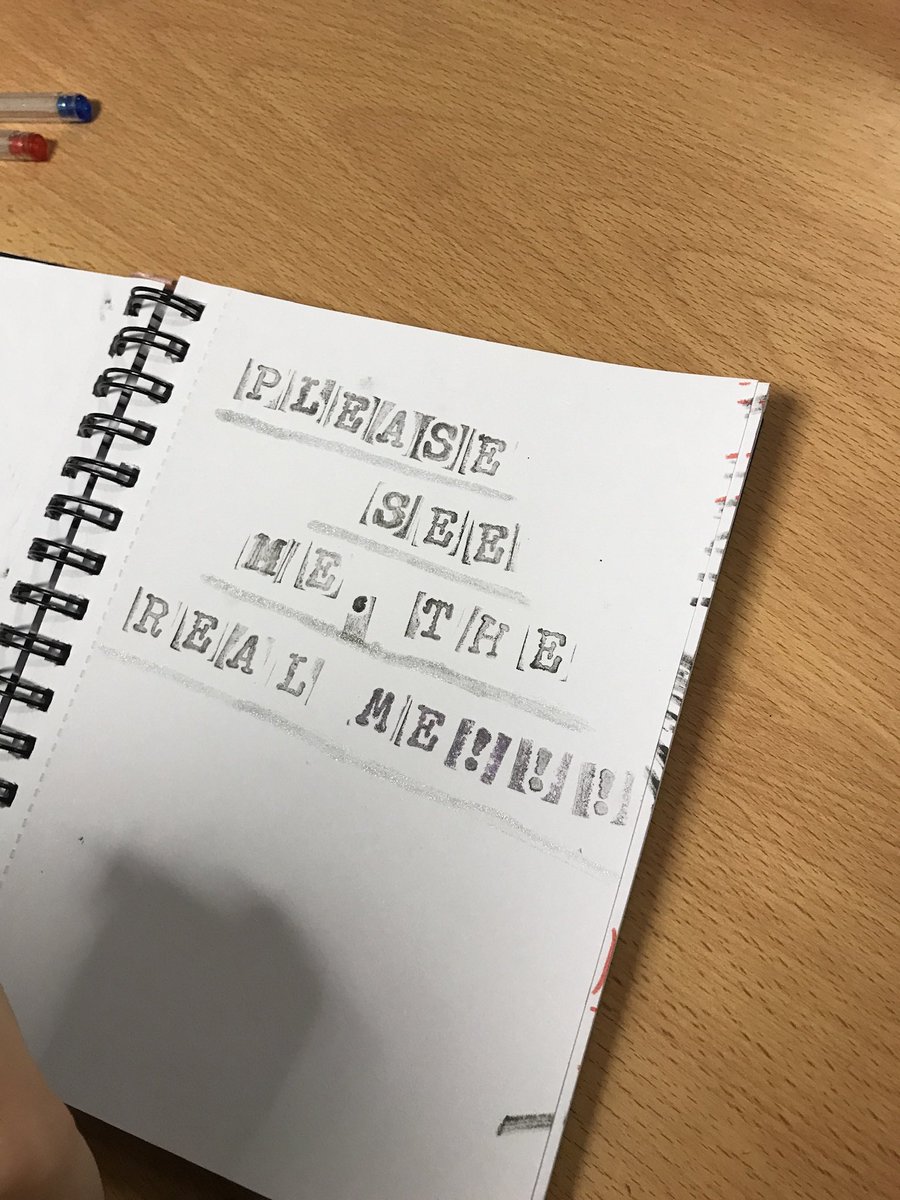 PLEASE
SEE
ME, THE
REAL ME!!!